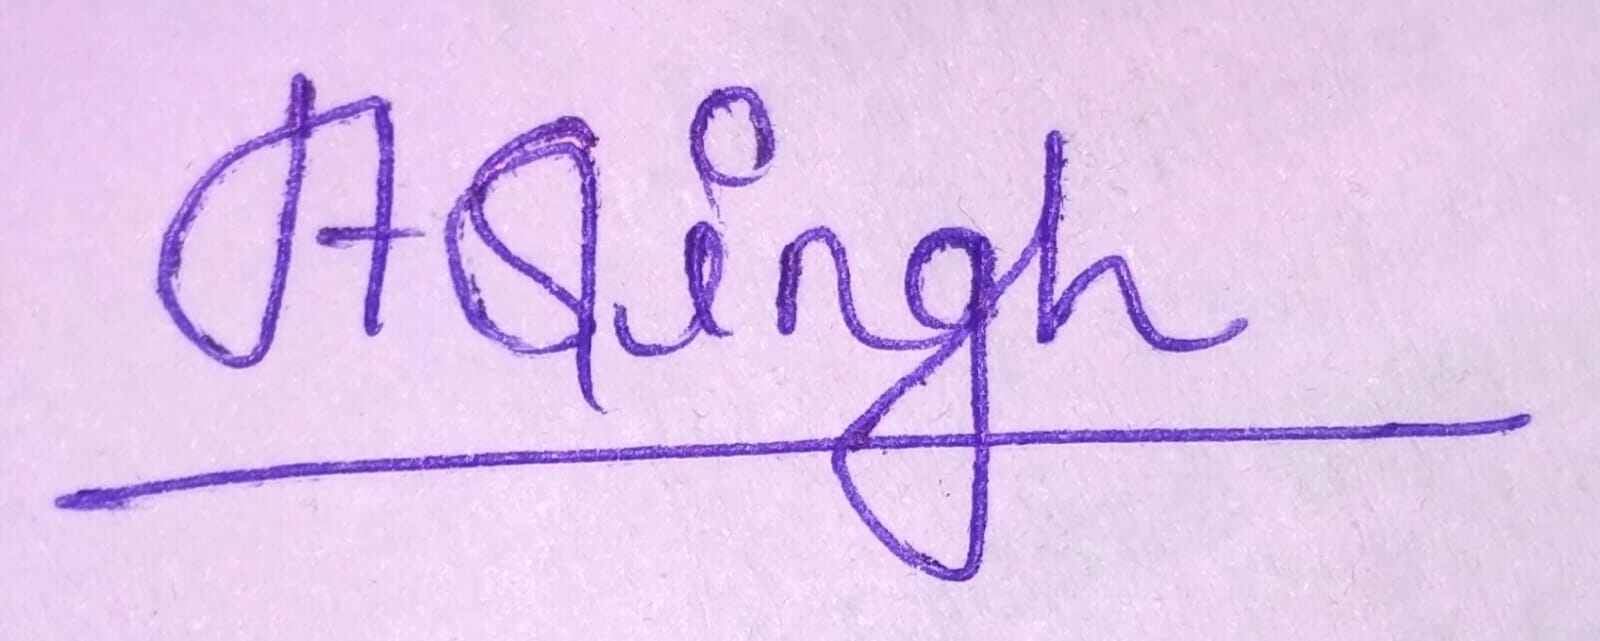 A Singh